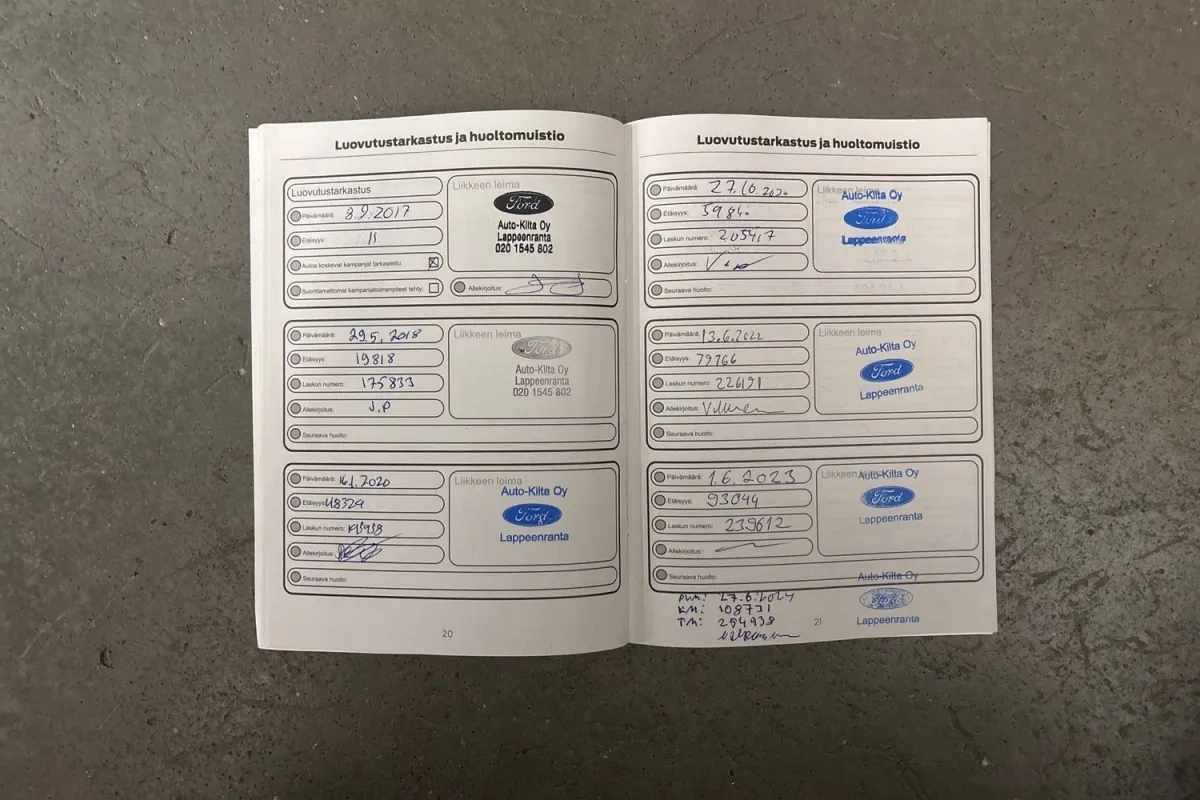 Luovutustarkastus ja huoltomuistio
Luovutustarkastus
Päivämäärä: 8.9.2017
Etäisyys: 11
Autoa koskevat kampanjat tarkastettu:
Suorittamattomat kampanjatoimenpiteet tehty:
Liikkeen leima
Ford
Auto-Kilta Oy
Lappeenranta
020 1545 802
Allekirjoitus:
Päivämäärä: 29.5.2018
Etäisyys: 19818
Laskun numero: 175833
Allekirjoitus: J.P
Seuraava huolto:
Liikkeen leima
Ford
Auto-Kilta Oy
Lappeenranta
020 1545 802
Päivämäärä: 16.1.2020
Etäisyys: 48329
Laskun numero:
Allekirjoitus:
Seuraava huolto:
Liikkeen leima
Auto-Kilta Oy
Ford
Lappeenranta
20
Luovutustarkastus ja huoltomuistio
Päivämäärä: 27.10.2020
Etäisyys:
Laskun numero: 205417
Allekirjoitus:
Seuraava huolto:
Liikkeen leima
Auto-Kilta Oy
Ford
Lappeenranta
Päivämäärä: 13.6.2022
Etäisyys: 79766
Laskun numero: 226191
Allekirjoitus:
Seuraava huolto:
Liikkeen leima
Auto-Kilta Oy
Ford
Lappeenranta
Päivämäärä: 1.6.2023
Etäisyys: 93044
Laskun numero: 239612
Allekirjoitus:
Seuraava huolto:
Liikkeen leima
Auto-Kilta Oy
Ford
Lappeenranta
PVM: 27.6.2024
KM: 108731
TM: 254938
Auto-Kilta Oy
Ford
Lappeenranta
21